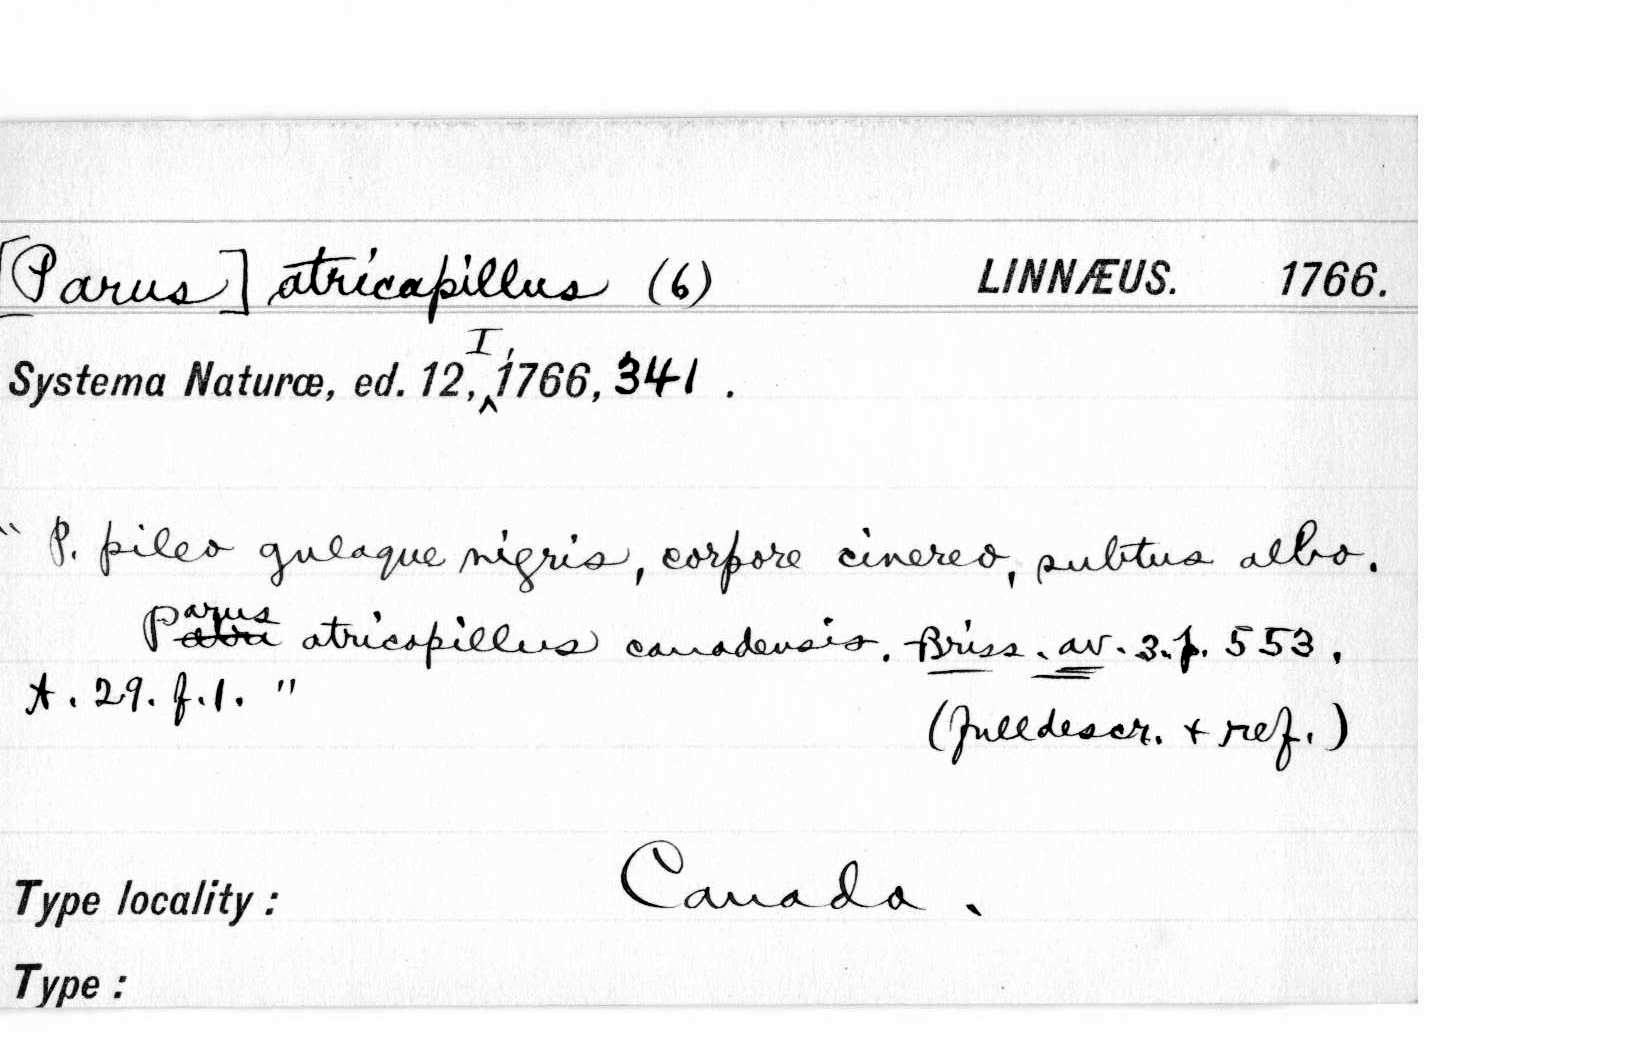 [Parus] atricapillus (6) LINNÆUS. 1766.
Systema Naturæ, ed. 12, I, 1766, 341 .
" P. pileo gulaque nigris, corpore cinereo, subtus albo.
Parus atricapillus canadensis. Briss. av. 3. p. 553,
t. 29. f. 1. "
(full descr. + ref.)
Type locality : Canada .
Type :